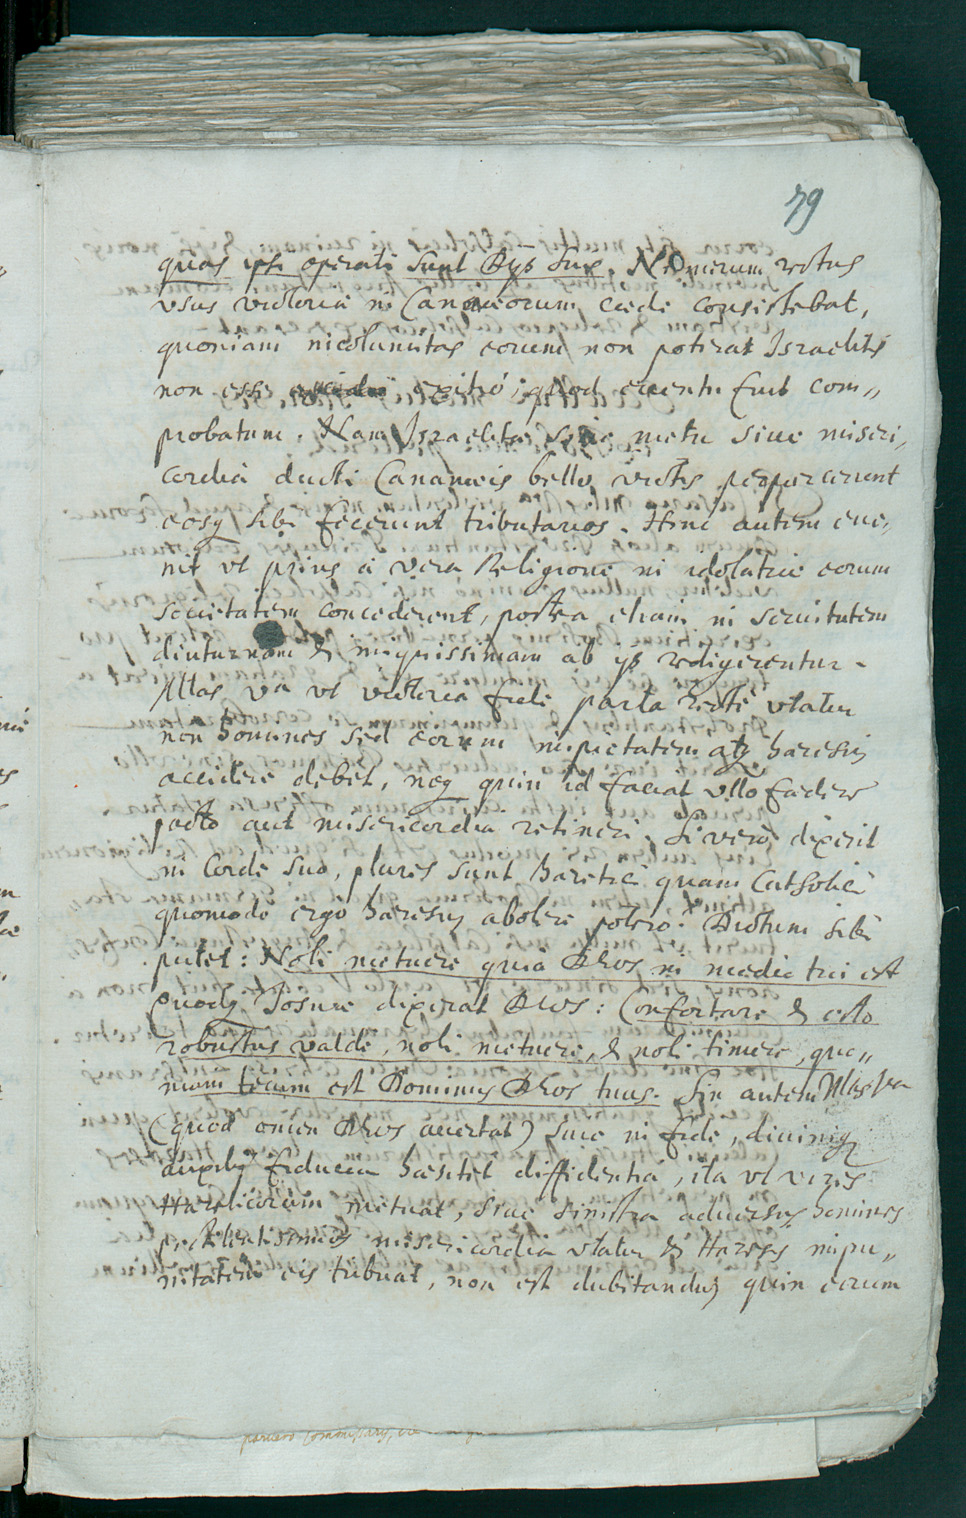 79
quas ipsi operati sunt Dijs suis. Nimirum rectus
vsus victoriæ in Cananæorum cæde consistebat,
quoniam incolumitas eorum non poterat Israelitis
non esse exitio, quod euentu fuit com„
probatum. Nam Israelitæ siue metu siue miseri„
cordiâ ducti Cananæis bello victis pepercerunt
eosq sibi fecerunt tributarios. Hinc autem eue„
nit vt prius à vera Religione in idolatriæ eorum
societatem concederent, postea etiam in seruitutem
diuturnam & iniquissimam ab ijs redigerentur.
Mtas Vra vt victoria fidei parta rectè vtatur
non homines sed eorum impietatem atq hæresin
occidere debet, neq quin id faciat vllo fædere
pacto aut misericordia retineri. Si vero dixerit
in Corde suo, plures sunt hæretici quam Catholici
quomodo ergo hæresin abolere potero? Dictum sibi
putet: Noli metuere quia Deus in medio tui est
Quodq Iosuæ dixerat Deus: Confortare & esto
robustus valde, noli metuere, & noli timere, quo„
niam tecum est Dominus Deus tuus. Sin autem Mtas Vra
(quod omen Deus auertat) siue in fide, diuiniq
auxilij fiducia hæsitet diffidentiâ, ita vt vires
Hæreticorum metuat, siue sinistra aduersus homines
pestilentissimos misericordia vtatur & Hæresis impu„
nitatem eis tribuat, non est dubitandum quin eorum